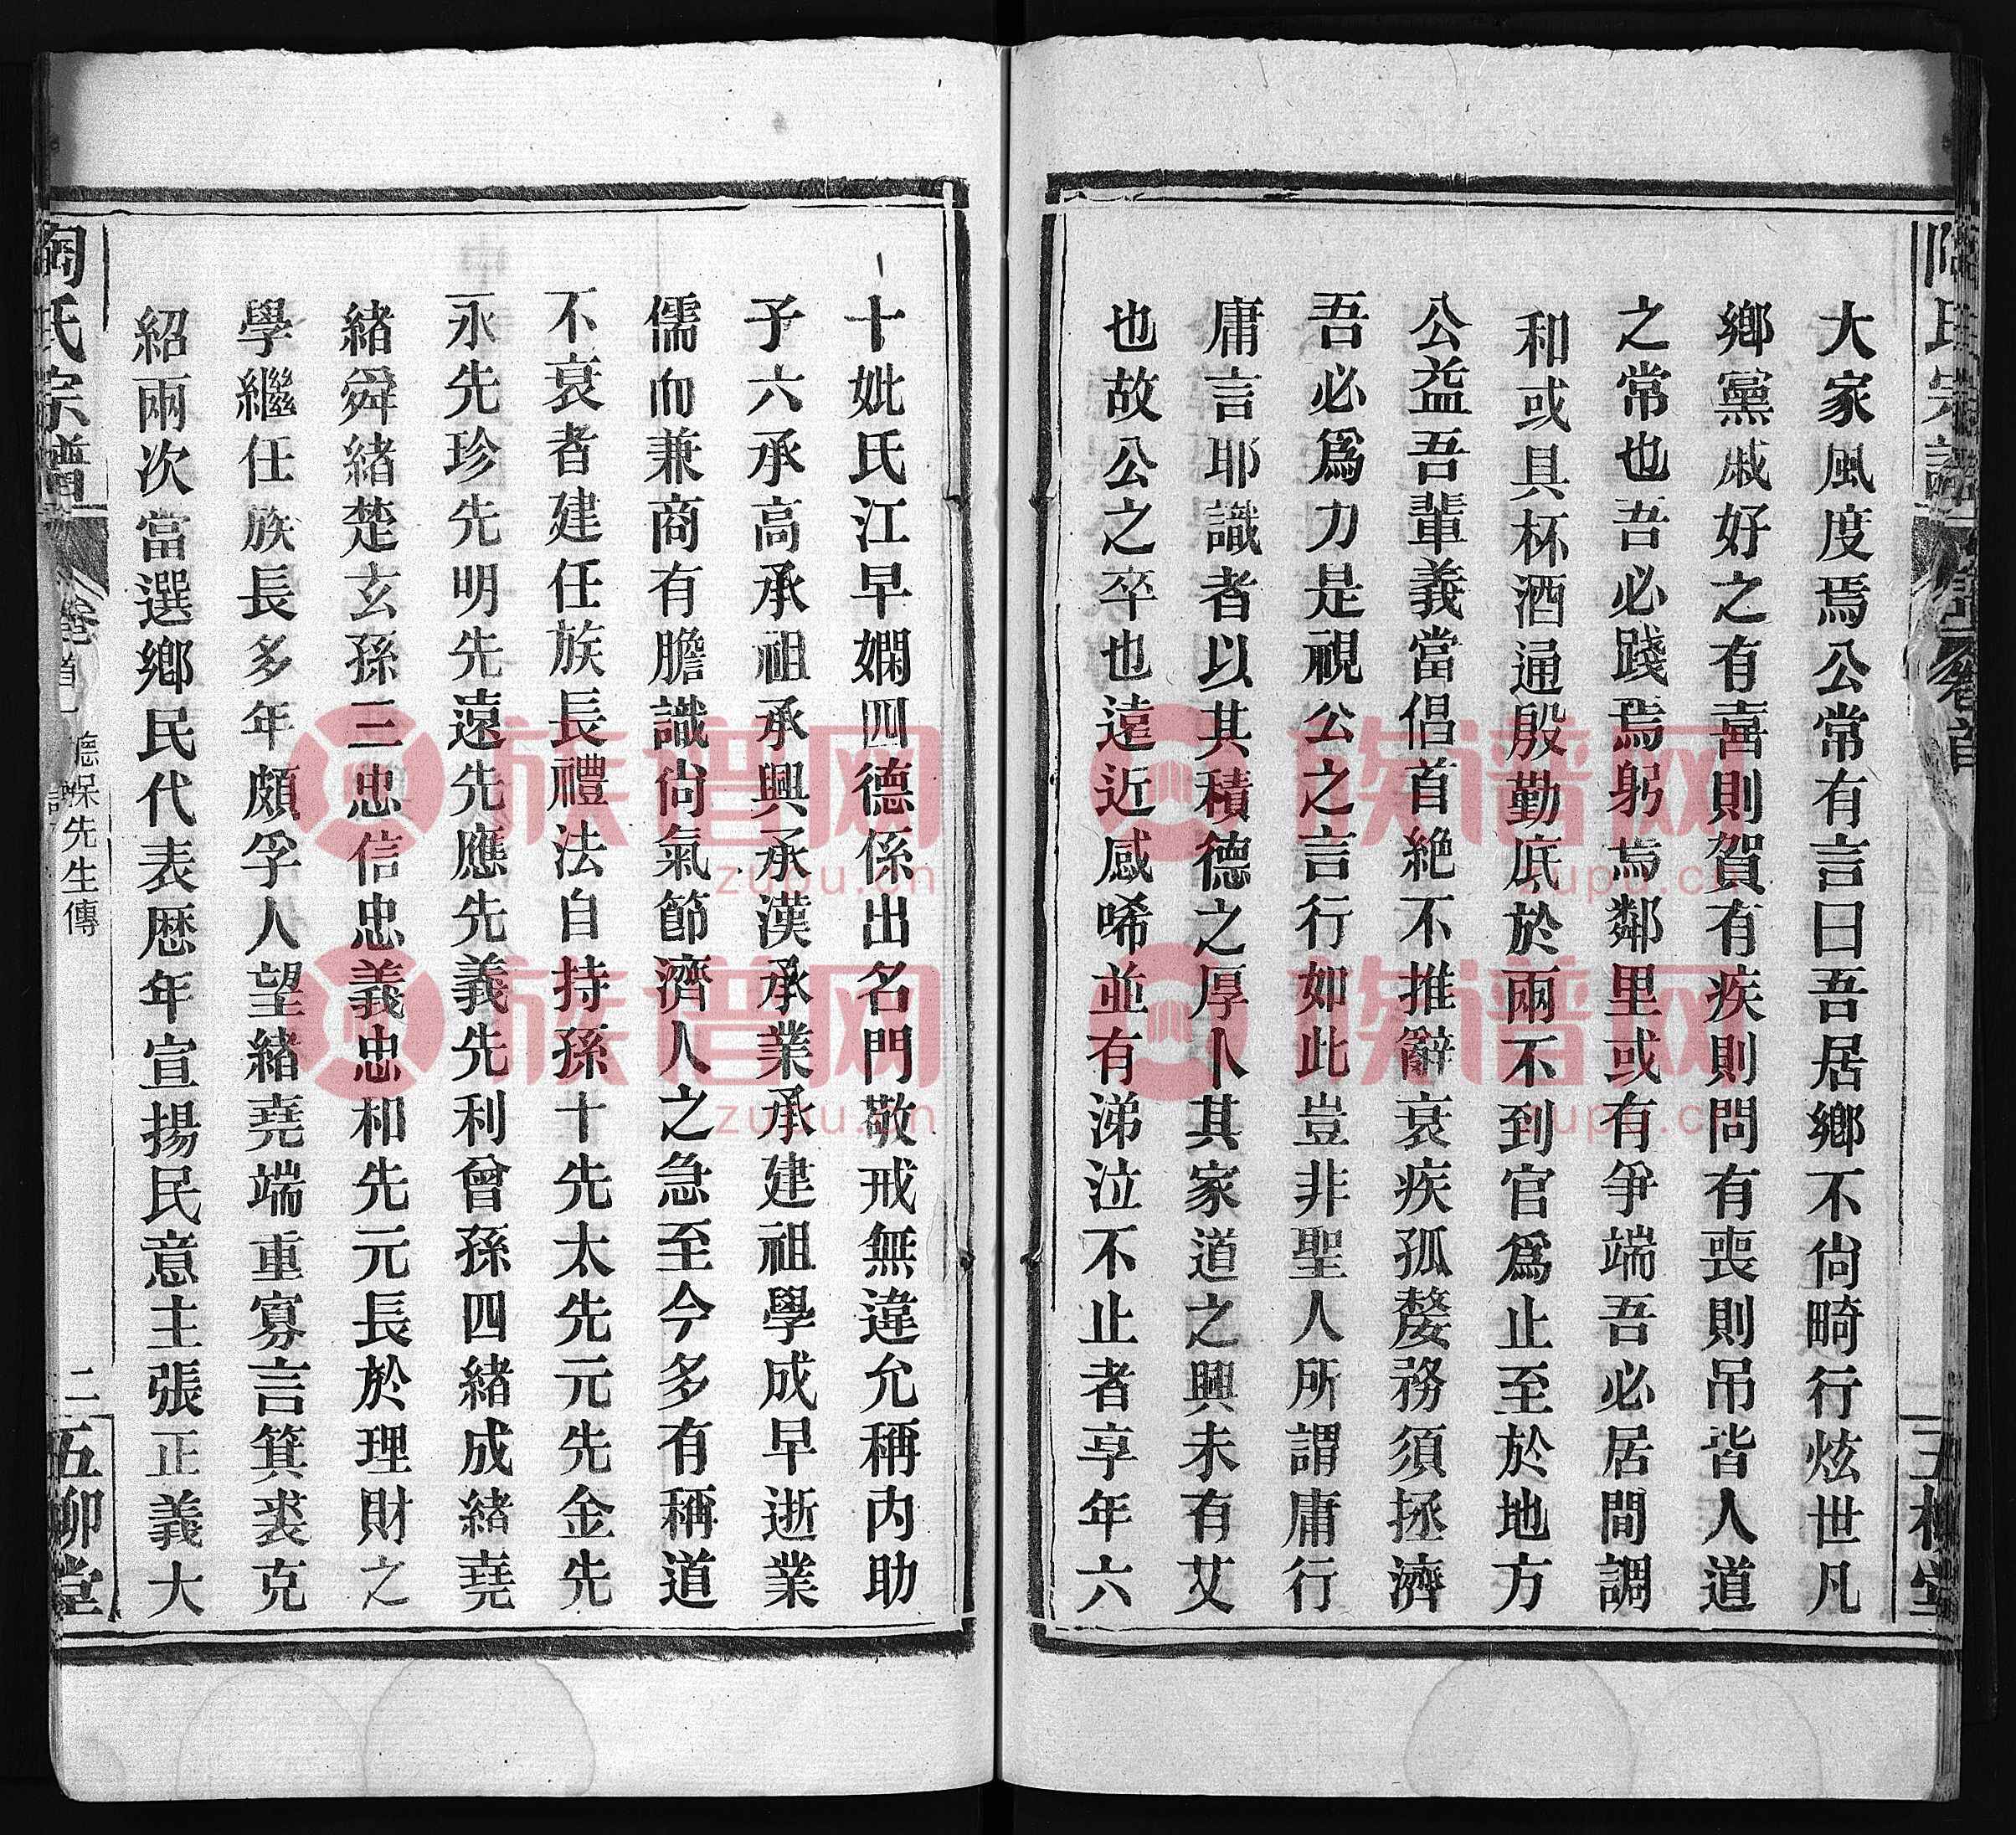 大家風度焉公常有言曰吾居鄉不尙畸行炫世凡
鄉黨戚好之有喜則賀有疾則問有喪則吊皆人道
之常也吾必踐焉躬焉鄰里或有爭端吾必居間調
和或具杯酒通殷勤底於兩不到官爲止至於地方
公益吾輩義當倡首絶不推辭衰疾孤嫠務須拯濟
吾必爲力是視公之言行如此豈非聖人所謂庸行
庸言耶識者以其積德之厚卜其家道之興未有艾
也故公之卒也遠近感唏並有涕泣不止者享年六
十妣氏江早嫻四德係出名門敬戒無違允稱内助
子六承高承祖承興承漢承業承建祖學成早逝業
儒而兼商有膽識尙氣節濟人之急至今多有稱道
不衰者建任族長禮法自持孫十先太先元先金先
永先珍先明先遠先應先義先利曾孫四緒成緒堯
緒舜緒楚玄孫三忠信忠義忠和先元長於理財之
學繼任族長多年頗孚人望緒堯端重寡言箕裘克
紹兩次當選鄉民代表歷年宣揚民意主張正義大
陶氏宗譜
卷首
德保先生傳
二
五柳堂
族谱网
zupu.cn
族谱网
zupu.cn
族谱网
zupu.cn
族谱网
zupu.cn